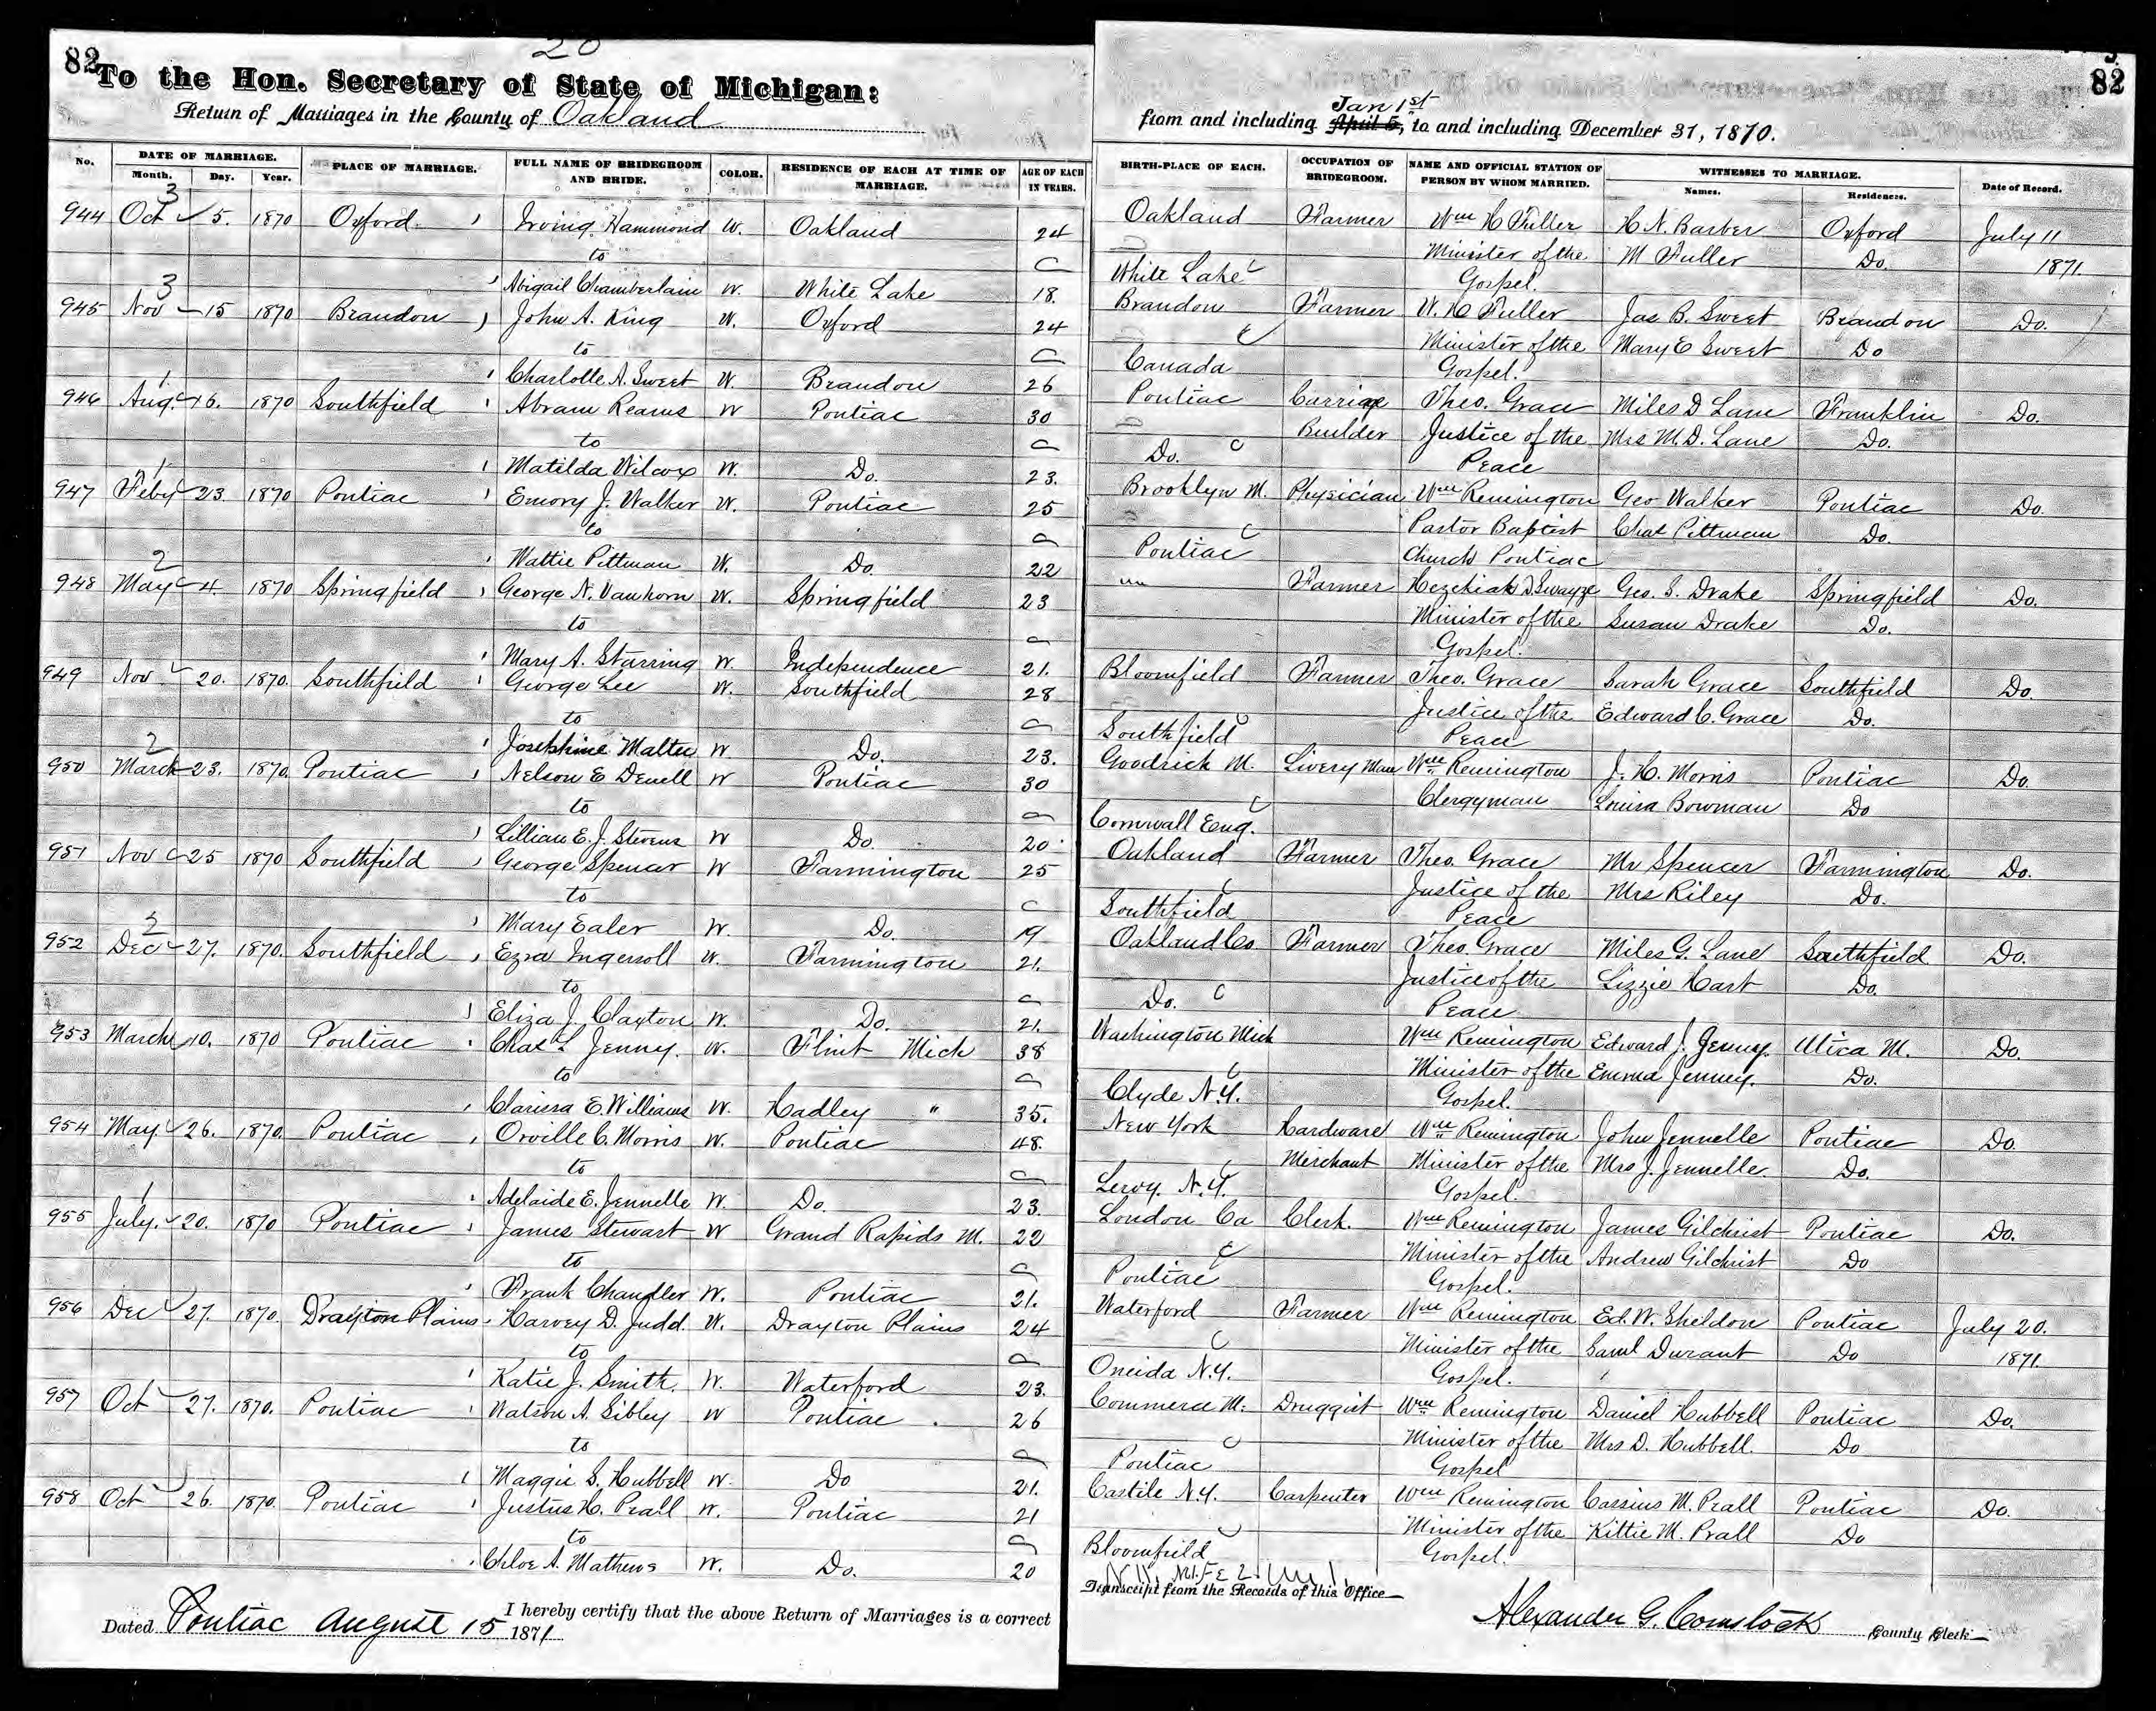 82
20
To the Hon. Secretary of State of Michigan:
Return of Marriages in the County of Oakland
No.
DATE OF MARRIAGE.
Month. Day. Year.
PLACE OF MARRIAGE.
FULL NAME OF BRIDEGROOM AND BRIDE.
COLOR.
RESIDENCE OF EACH AT TIME OF MARRIAGE.
AGE OF EACH IN YEARS.
3
944 Oct 5. 1870 Oxford Irving Hammond W. Oakland 24
to
Abigail Chamberlain W. White Lake 18.
3
945 Nov 15 1870 Brandon John A. King W. Oxford 24
to
Charlotte A. Sweet W. Brandon 26
1
946 Aug. 16. 1870 Southfield Abram Reams W Pontiac 30
to
Matilda Wilcox W. Do. 23.
1
947 Feby 23. 1870 Pontiac Emory J. Walker W. Pontiac 25
to
Mattie Pittman W. Do. 22
2
948 May 4 1870 Springfield George N. Vanhorn W. Springfield 23
to
Mary A. Starring W. Independence 21.
949 Nov 20. 1870. Southfield George Lee W. Southfield 28
to
Josephine W. Do. 23.
2
950 March 23. 1870. Pontiac Nelson E. Dewell W Pontiac 30
to
Lillian E. J. Stevens W Do. 20
951 Nov 25 1870 Southfield George Spencer W Farmington 25
to
Mary Ealer W. Do. 19
3
952 Dec 27. 1870. Southfield Ezra Ingersoll W. Farmington 21.
to
Eliza J. Clayton W. Do. 21.
953 March 10. 1870 Pontiac Chas L Jenny. W. Flint Mich 38
to
Clarissa E. Williams W. Hadley " 35.
954 May. 26. 1870. Pontiac Orville C. Morris W. Pontiac 48.
to
Adelaide E. Jennelle W. Do. 23.
1
955 July. 20. 1870 Pontiac James Stewart W Grand Rapids M. 22
to
Frank Chandler W. Pontiac 21.
956 Dec 27. 1870. Drayton Plains Harvey D. Judd. W. Drayton Plains 24
to
Katie J. Smith. W. Waterford 23.
957 Oct 27. 1870. Pontiac Watson A. Sibley W Pontiac 26
to
Maggie S. Hubbell W. Do 21.
958 Oct 26. 1870. Pontiac Justus H. Prall W. Pontiac 21
to
Chloe A. Mathews W. Do. 20
Dated Pontiac August 15 1871 I hereby certify that the above Return of Marriages is a correct
82
Jan 1st
from and including April 5, to and including December 31, 1870.
BIRTH-PLACE OF EACH.
OCCUPATION OF BRIDEGROOM.
NAME AND OFFICIAL STATION OF PERSON BY WHOM MARRIED.
WITNESSES TO MARRIAGE.
Names. Residences.
Date of Record.
Oakland Farmer Wm H Fuller H. N. Barber Oxford July 11
Minister of the M Fuller Do. 1871.
White Lake Gospel.
Brandon Farmer W. H Fuller Jas B. Sweet Brandon Do.
Minister of the Mary E Sweet Do
Canada Gospel.
Pontiac Carriage Theo. Grace Miles D Lane Franklin Do.
Builder Justice of the Mrs M. D. Lane Do.
Do. Peace
Brooklyn M. Physician Wm Remington Geo Walker Pontiac Do.
Pastor Baptist Chas Pittman Do.
Pontiac Church Pontiac
" Farmer Hezekiah D Swayze Geo. S. Drake Springfield Do.
Minister of the Susan Drake Do.
Gospel.
Bloomfield Farmer Theo. Grace Sarah Grace Southfield Do.
Justice of the Edward C. Grace Do.
Southfield Peace
Goodrich M. Livery Man Wm Remington J. H. Morris Pontiac Do
Clergyman Louisa Bowman Do
Cornwall Eng.
Oakland Farmer Theo. Grace Mr Spencer Farmington Do.
Justice of the Mrs Riley Do.
Southfield Peace
Oakland Co Farmer Theo. Grace Miles G. Lane Southfield Do.
Justice of the Lizzie Hart Do.
Do. Peace
Washington Mich Wm Remington Edward J. Jenny. Utica M. Do.
Minister of the Emma Jenney. Do.
Clyde N.Y. Gospel.
New York Hardware Wm Remington John Jennelle Pontiac Do.
Merchant Minister of the Mrs J. Jennelle. Do.
Leroy. N.Y. Gospel.
London Ca Clerk. Wm Remington James Gilchrist Pontiac Do.
Minister of the Andrew Gilchrist Do
Pontiac Gospel.
Waterford Farmer Wm Remington Ed. W. Sheldon Pontiac July 20.
Minister of the Saml Durant Do 1871.
Oneida N.Y. Gospel.
Commerce M. Druggist Wm Remington Daniel Hubbell Pontiac Do.
Minister of the Mrs D. Hubbell. Do
Pontiac Gospel
Castile N.Y. Carpenter Wm Remington Cassius M. Prall Pontiac Do.
Minister of the Kittie M. Prall Do
Bloomfield Gospel.
Transcript from the Records of this Office
Alexander G. Comstock County Clerk